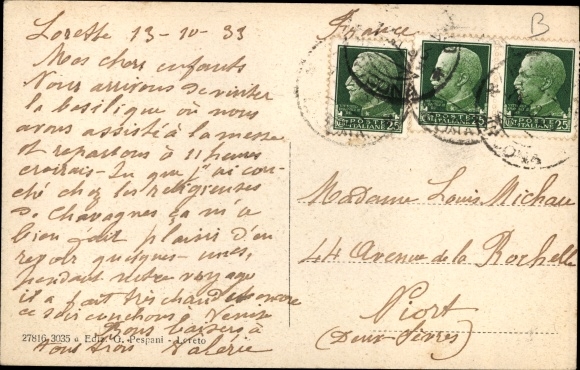 Lorette 13-10-33
Mes chers enfants
Nous arrivons de visiter
la basilique où nous
avons assisté à la messe
et repartons à 11 heures
croirais-tu que j'ai cou-
ché chez les religieuses
de Chavagnes ça m'a
bien fait plaisir d'en
revoir quelques-unes,
pendant notre voyage
il a fait très chaud et encore
ce soir couchons à Venise
Bons baisers à
tous trois Valérie
27816-3035 a Ediz. G. Pespani - Loreto
France
B
POSTE
ITALIANE 25
POSTE
ITALIANE 25
POSTE
ITALIANE 25
Madame Louis Michau
44 Avenue de la Rochelle
Niort
(Deux-Sèvres)